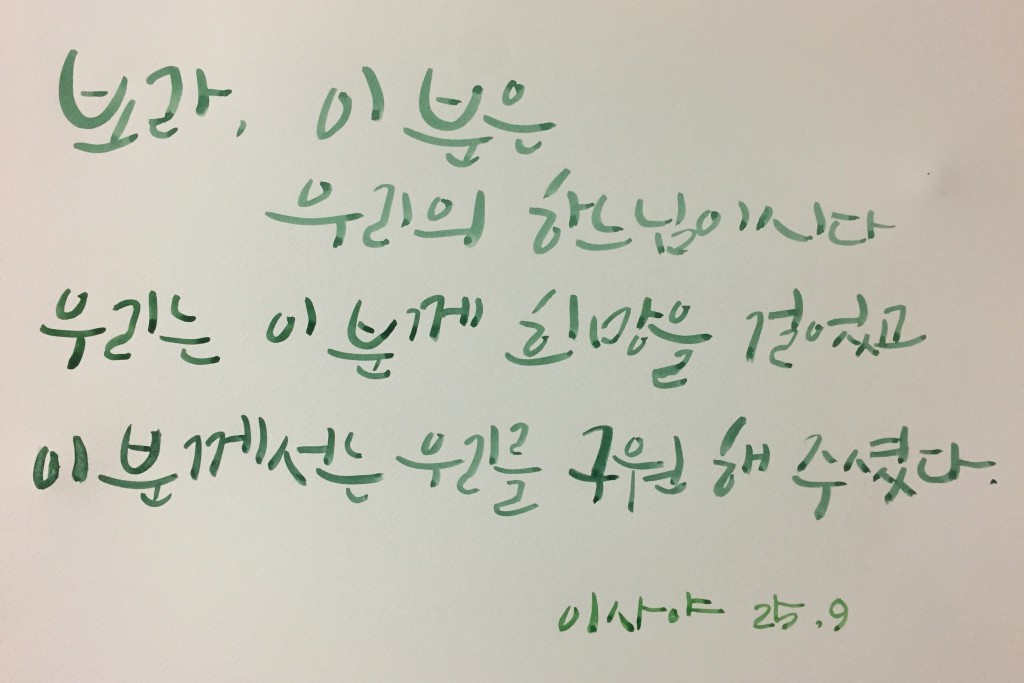 보라, 이 분은
우리의 하느님이시다
우리는 이 분께 희망을 걸었고
이 분께서는 우리를 구원 해 주셨다.
이사야 25.9